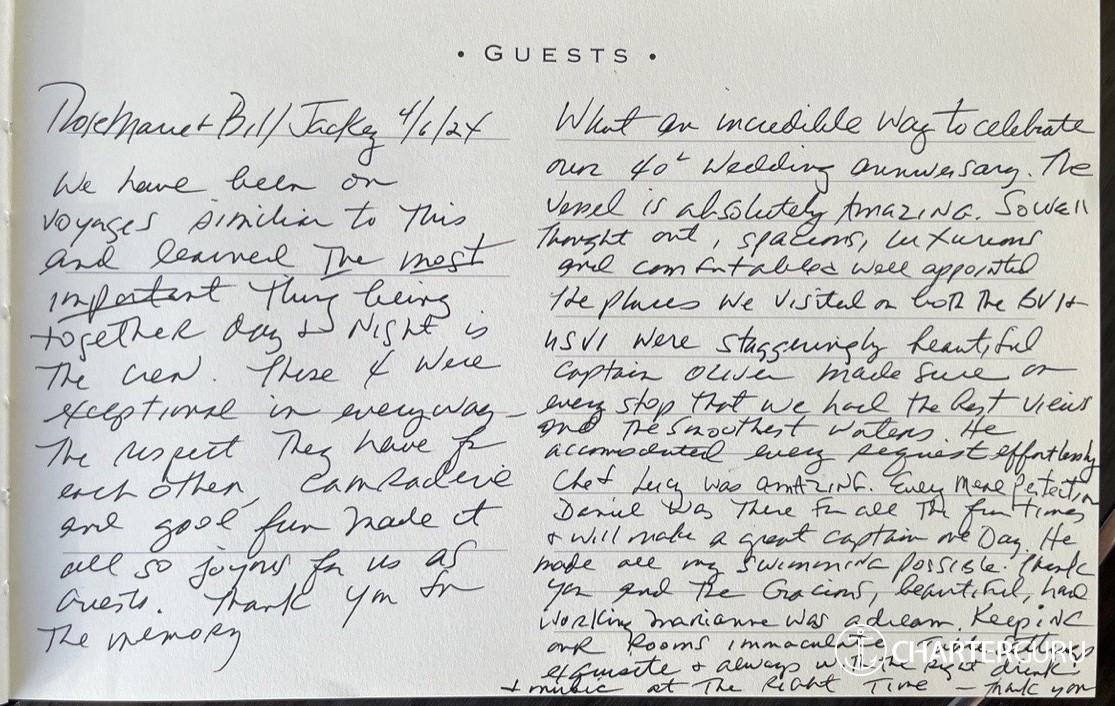 • GUESTS •
RoseMarie + Bill Jackey 4/6/24
We have been on
voyages similiar to this
and learned The most
important Thing being
together Day & Night is
The crew. These 4 were
exceptional in everyway –
The respect They have for
each other, camraderie
and good fun made it
all so joyous for us as
Guests. Thank you for
The memory
What an incredible way to celebrate
our 40th Wedding anniversary. The
vessel is absolutely Amazing. So well
Thought out, spacious, luxurious
and comfortable & well appointed
The places We visited on both The BVI +
USVI Were staggeringly beautiful
Captain Oliver made sure on
every stop That we had The best views
and The smoothest waters. He
accomodated every request effortlessly
Chef Lucy was amAZING. Every meal perfection
Daniel Was There for all The fun Times
+ will make a great captain one Day. He
made all my swimming possible. Thank
you and The Gracious, beautiful, hard
working Marianne Was a dream. Keeping
our Rooms immaculate
exquisite + always w/ The Right drink
+ music at The Right Time – Thank you
CHARTERGURU